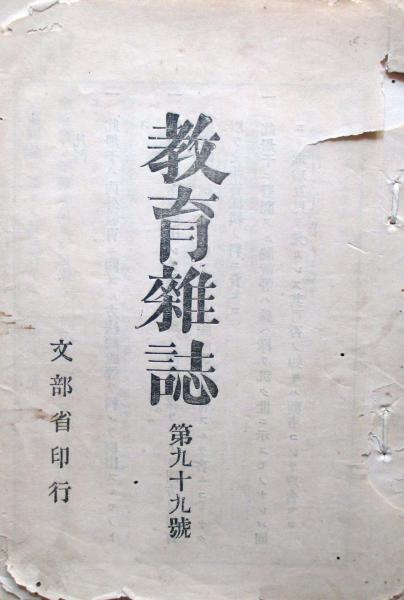 教育雜誌
第九十九號
文部省印行